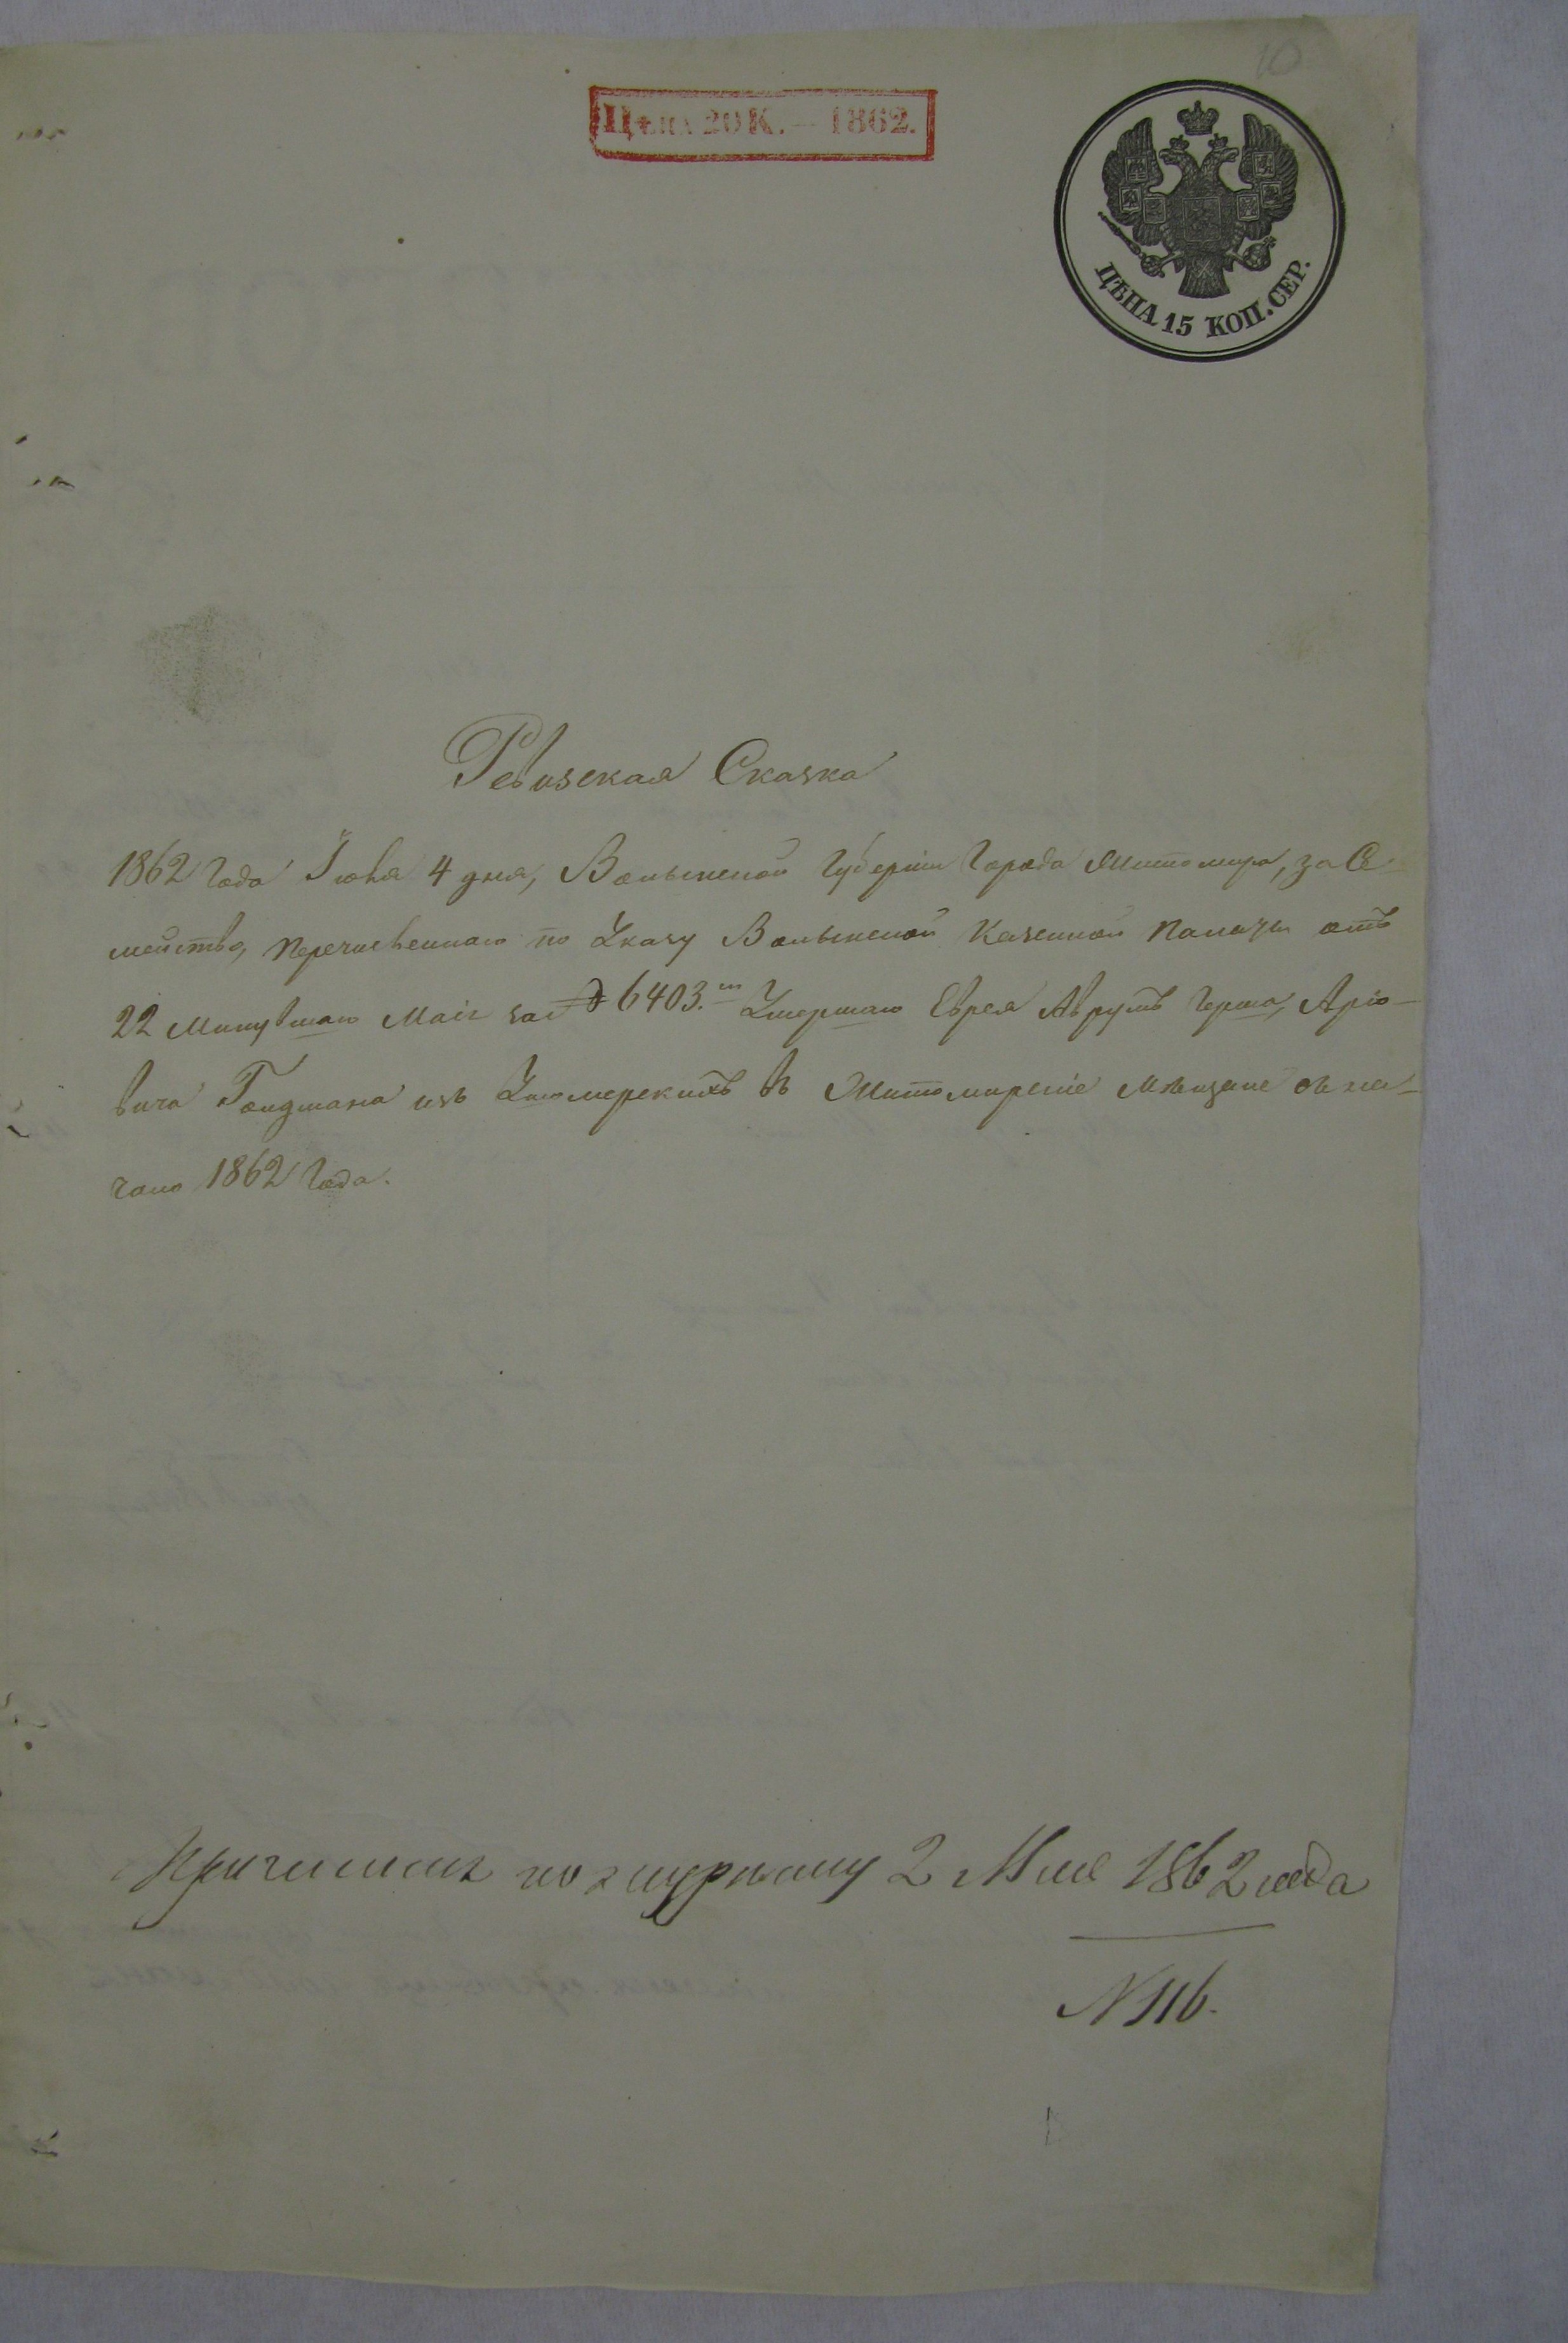 10
Цѣна 20 К. — 1862.
ЦѢНА 15 КОП. СЕР.
Ревизская Сказка
1862 Года Іюня 4 дня, Волынской Губерніи Города Житомира, за Се-
мейство, перечисленнаго по Указу Волынской Казенной Палаты отъ
22 Минувшаго Маія за № 6403.ш Умершаго Еврея Аврумъ Герша, Аріо-
вича Гойдмана изъ въ Житомирскіе Мѣщане съ на-
чало 1862 Года.
Причислен по журналу 2 Мая 1862 года
N 116.